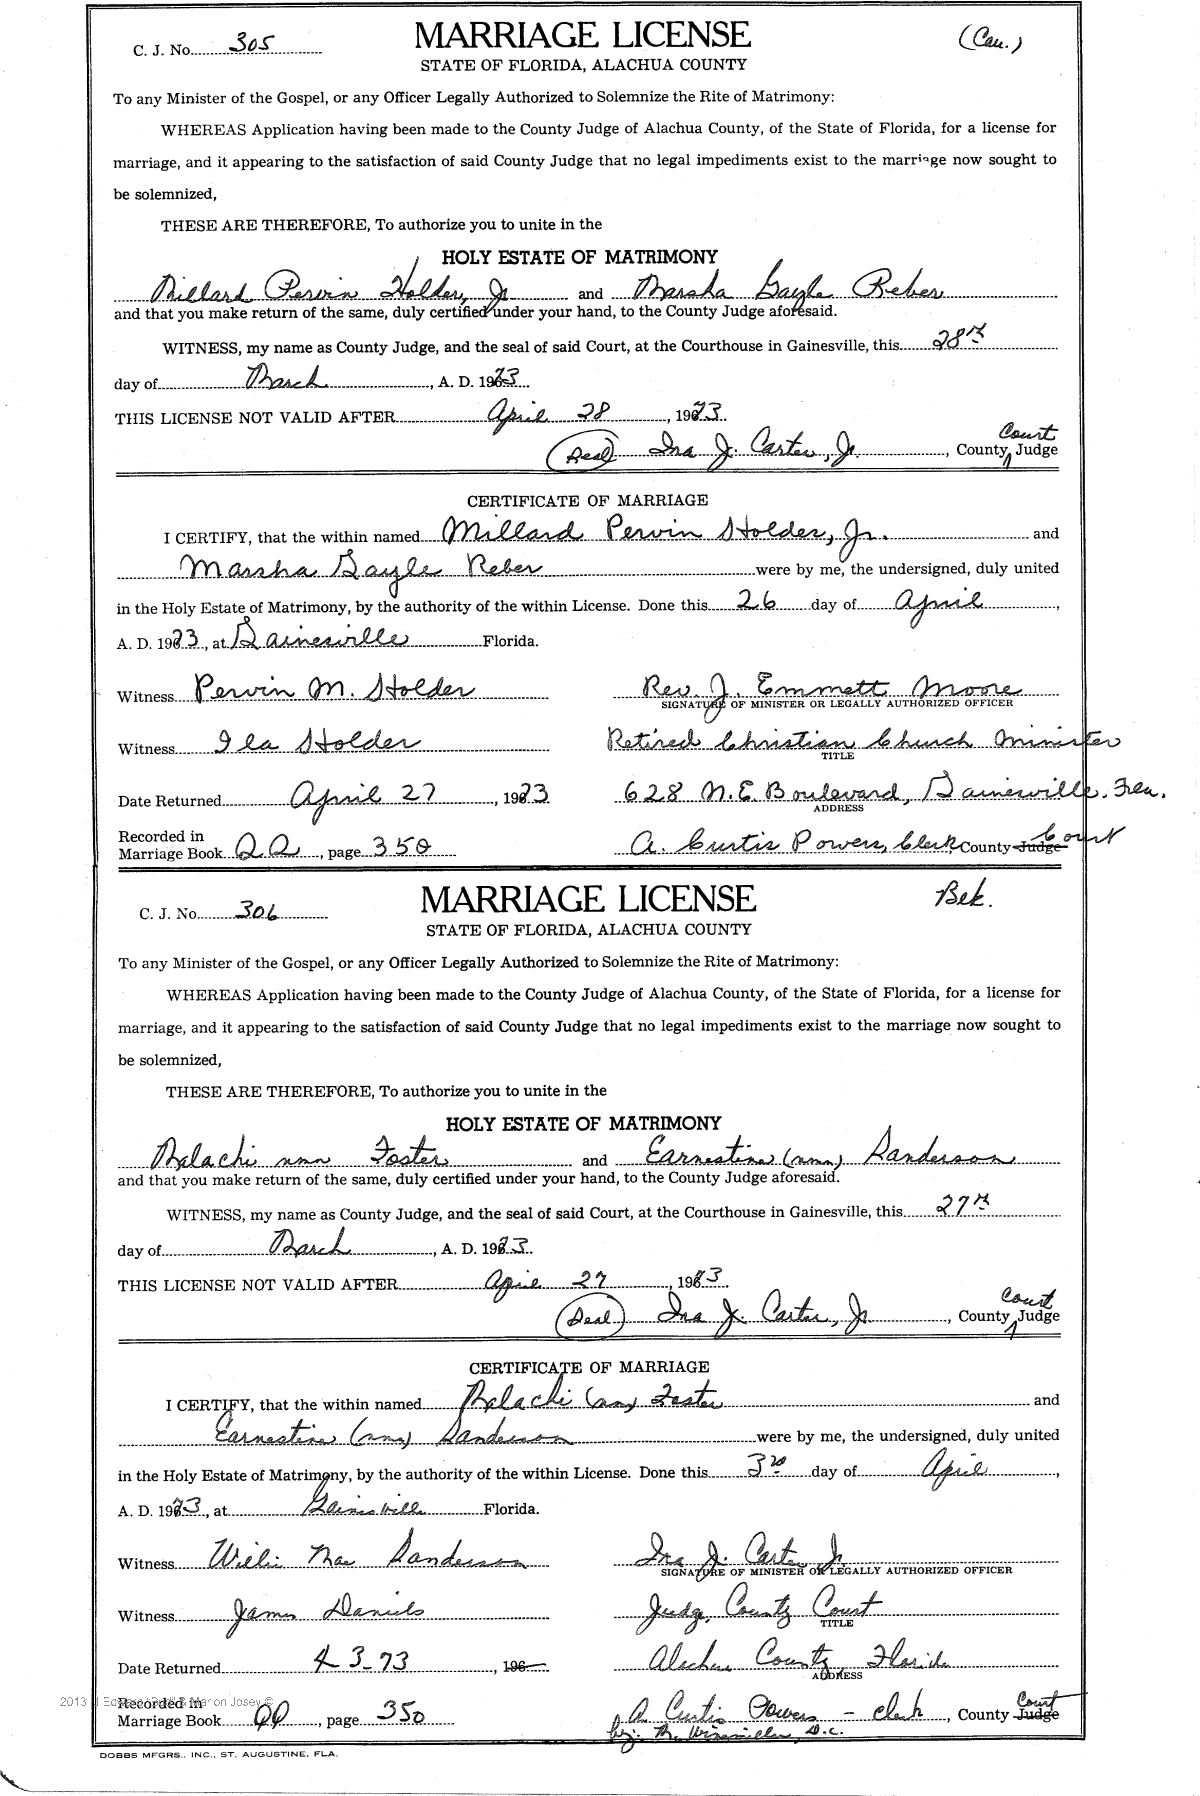 C. J. No. 305 MARRIAGE LICENSE (Cau.)
STATE OF FLORIDA, ALACHUA COUNTY
To any Minister of the Gospel, or any Officer Legally Authorized to Solemnize the Rite of Matrimony:
WHEREAS Application having been made to the County Judge of Alachua County, of the State of Florida, for a license for
marriage, and it appearing to the satisfaction of said County Judge that no legal impediments exist to the marriage now sought to
be solemnized,
THESE ARE THEREFORE, To authorize you to unite in the
HOLY ESTATE OF MATRIMONY
Millard Pervin Holder, Jr. and Marsha Gayle Reber
and that you make return of the same, duly certified under your hand, to the County Judge aforesaid.
WITNESS, my name as County Judge, and the seal of said Court, at the Courthouse in Gainesville, this 28th
day of March, A. D. 1973.
THIS LICENSE NOT VALID AFTER April 28, 1973.
Court
(Seal) Ira J. Carter, Jr., County Judge
CERTIFICATE OF MARRIAGE
I CERTIFY, that the within named Millard Pervin Holder, Jr. and
Marsha Gayle Reber were by me, the undersigned, duly united
in the Holy Estate of Matrimony, by the authority of the within License. Done this 26 day of April,
A. D. 1973, at Gainesville Florida.
Witness Pervin M. Holder Rev. J. Emmett Moore
SIGNATURE OF MINISTER OR LEGALLY AUTHORIZED OFFICER
Witness Ila Holder Retired Christian Church Minister
TITLE
Date Returned April 27, 1973 628 N.E. Boulevard, Gainesville, Fla.
ADDRESS
Recorded in
Marriage Book QQ, page 350 A. Curtis Powers, Clerk County Judge Court
C. J. No. 306 MARRIAGE LICENSE Bek.
STATE OF FLORIDA, ALACHUA COUNTY
To any Minister of the Gospel, or any Officer Legally Authorized to Solemnize the Rite of Matrimony:
WHEREAS Application having been made to the County Judge of Alachua County, of the State of Florida, for a license for
marriage, and it appearing to the satisfaction of said County Judge that no legal impediments exist to the marriage now sought to
be solemnized,
THESE ARE THEREFORE, To authorize you to unite in the
HOLY ESTATE OF MATRIMONY
Malachi nmn Foster and Earnestine (nmn) Sanderson
and that you make return of the same, duly certified under your hand, to the County Judge aforesaid.
WITNESS, my name as County Judge, and the seal of said Court, at the Courthouse in Gainesville, this 27th
day of March, A. D. 1973.
THIS LICENSE NOT VALID AFTER April 27, 1973.
Court
(Seal) Ira J. Carter, Jr., County Judge
CERTIFICATE OF MARRIAGE
I CERTIFY, that the within named Malachi (nmn) Foster and
Earnestine (nmn) Sanderson were by me, the undersigned, duly united
in the Holy Estate of Matrimony, by the authority of the within License. Done this 3rd day of April,
A. D. 1973, at Gainesville Florida.
Witness Willie Mae Sanderson Ira J. Carter Jr.
SIGNATURE OF MINISTER OR LEGALLY AUTHORIZED OFFICER
Witness James Daniels Judge, County Court
TITLE
Date Returned 4-3-73, 196 Alachua County, Florida
ADDRESS
Recorded in
Court
Marriage Book QQ, page 350 A Curtis Powers - Clerk, County Judge
by: D.C.
DOBBS MFGRS., INC., ST. AUGUSTINE, FLA.